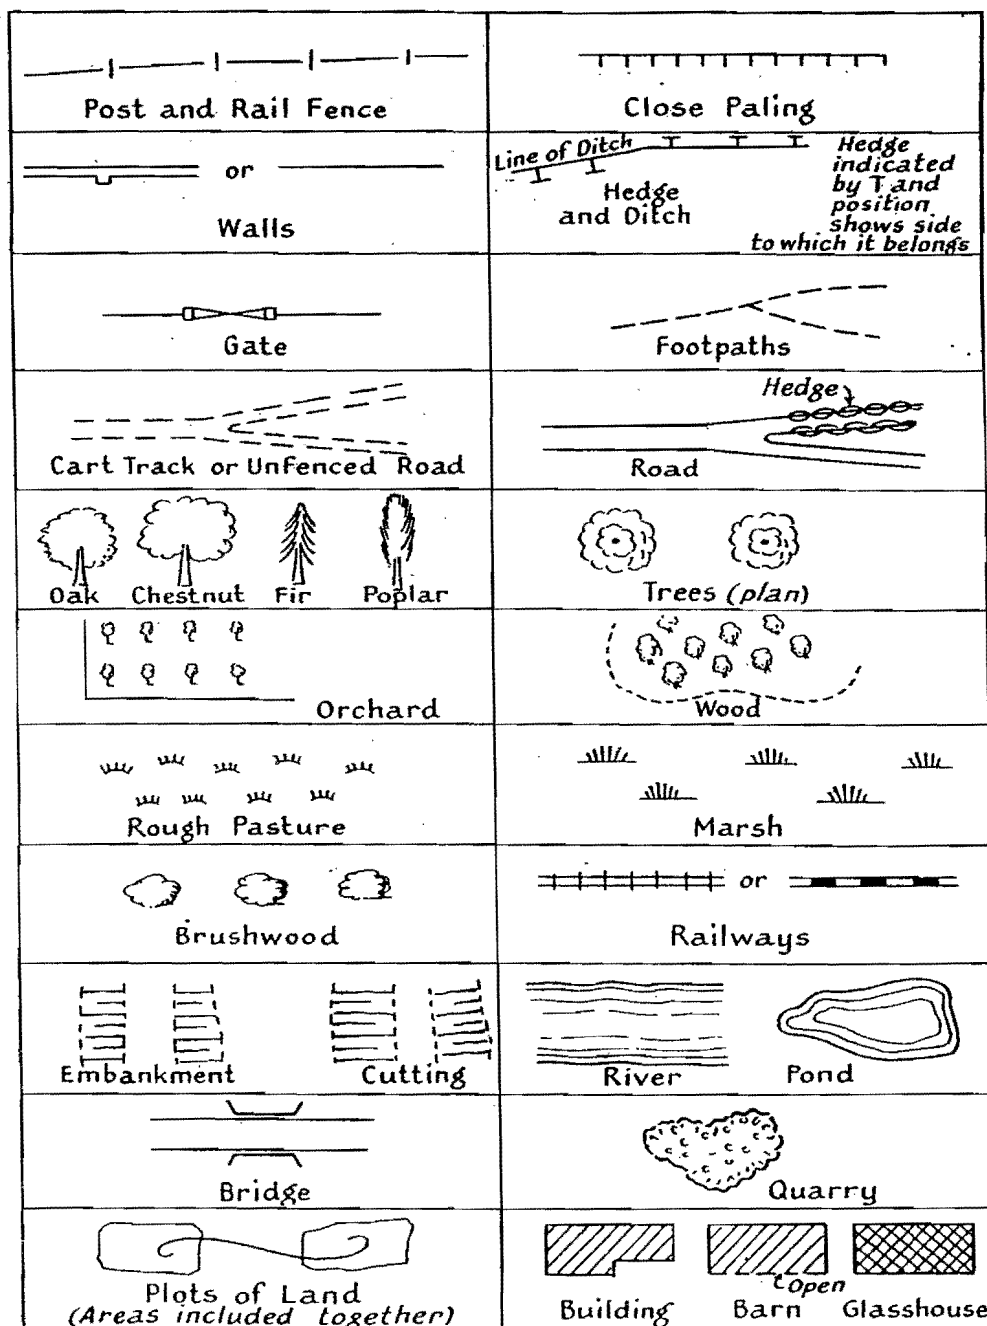 Post and Rail Fence
Close Paling
or
Walls
Line of Ditch
Hedge
and Ditch
Hedge
indicated
by T and
position
shows side
to which it belongs
Gate
Footpaths
Cart Track or Unfenced Road
Hedge
Road
Oak Chestnut Fir Poplar
Trees (plan)
Orchard
Wood
Rough Pasture
Marsh
Brushwood
or
Railways
Embankment Cutting
River Pond
Bridge
Quarry
Plots of Land
(Areas included together)
Open
Building Barn Glasshouse